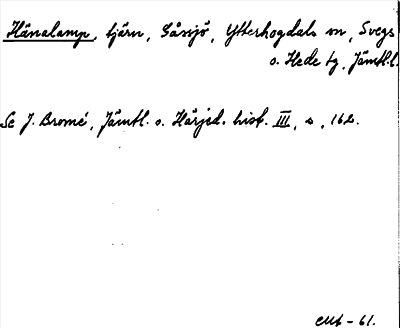 Hänalamp, tjärn, Gåssjö, Ytterhogdals sn, Svegs
o. Hede tg, Jämtl.l.
Se J. Bromé, Jämtl. o. Härjed. hist. III, s. 162.
-61.